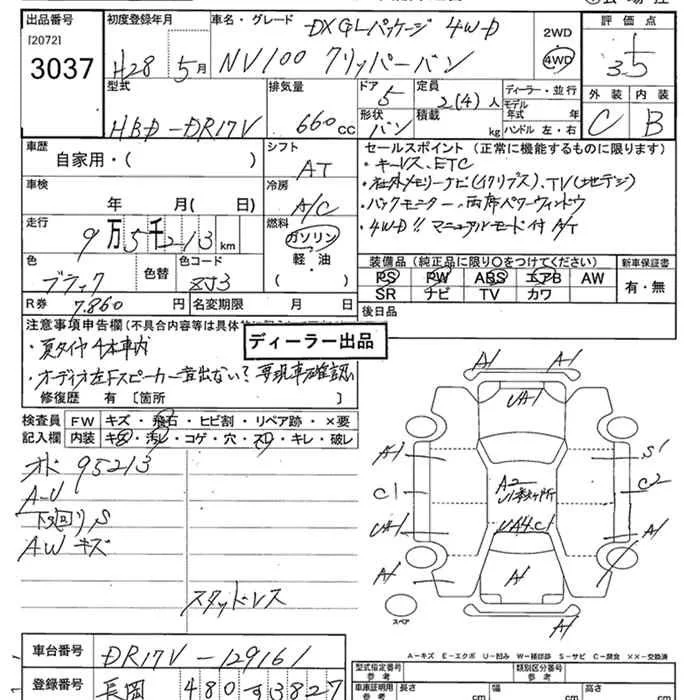 出品番号
[2072]
3037
初度登録年月
H28 5月
車名・グレード
DX GLパッケージ 4WD
NV100 クリッパーバン
2WD
4WD
評価点
3.5
外装 内装
C B
型式
HBD-DR17V
排気量
660 cc
ドア
5
形状
バン
定員
2(4)人
積載
kg
ディーラー・並行
モデル年式 年
ハンドル 左・右
車歴
自家用・( )
シフト
AT
車検
年 月( 日)
冷房
A/C
走行
9万5千213 km
燃料
ガソリン
軽・油
色
ブラック
色替
色コード
ZJ3
R券
7.860 円
名変期限 月 日
セールスポイント (正常に機能するものに限ります)
・キーレス、ETC
・社外メモリーナビ(イクリプス)、TV(地デジ)
・バックモニター・両席パワーウィンドウ
・4WD!! マニュアルモード付A/T
装備品(純正品に限り○をつけてください)
PS PW ABS エアB AW
SR ナビ TV カワ
新車保証書
有・無
後日品
注意事項申告欄(不具合内容等は具体的
ディーラー出品
・夏タイヤ4本車内
・オーディオ左Fスピーカー音出ない?要現車確認
修復歴 有 [箇所 ]
検査員記入欄
FW キズ・飛石・ヒビ割・リペア跡・×要
内装 キズ・汚レ・コゲ・穴・スレ・キレ・破レ
メーター 95213
A-U
下回りS
AWキズ
スタッドレス
A1 A1
UA1
A1 S1
C1 C2
A2
UA1 A1
UA4.C1
A1 A1
A1
スペア
A-キズ E-エクボ U-凹み W-補修跡 S-サビ C-腐食 XX-交換済
車台番号
DR17V-129161
登録番号
長岡 480 す3827
型式指定番号
参考
類別区分番号
参考
車庫証明用
参考
長さ cm
幅 cm
高さ cm